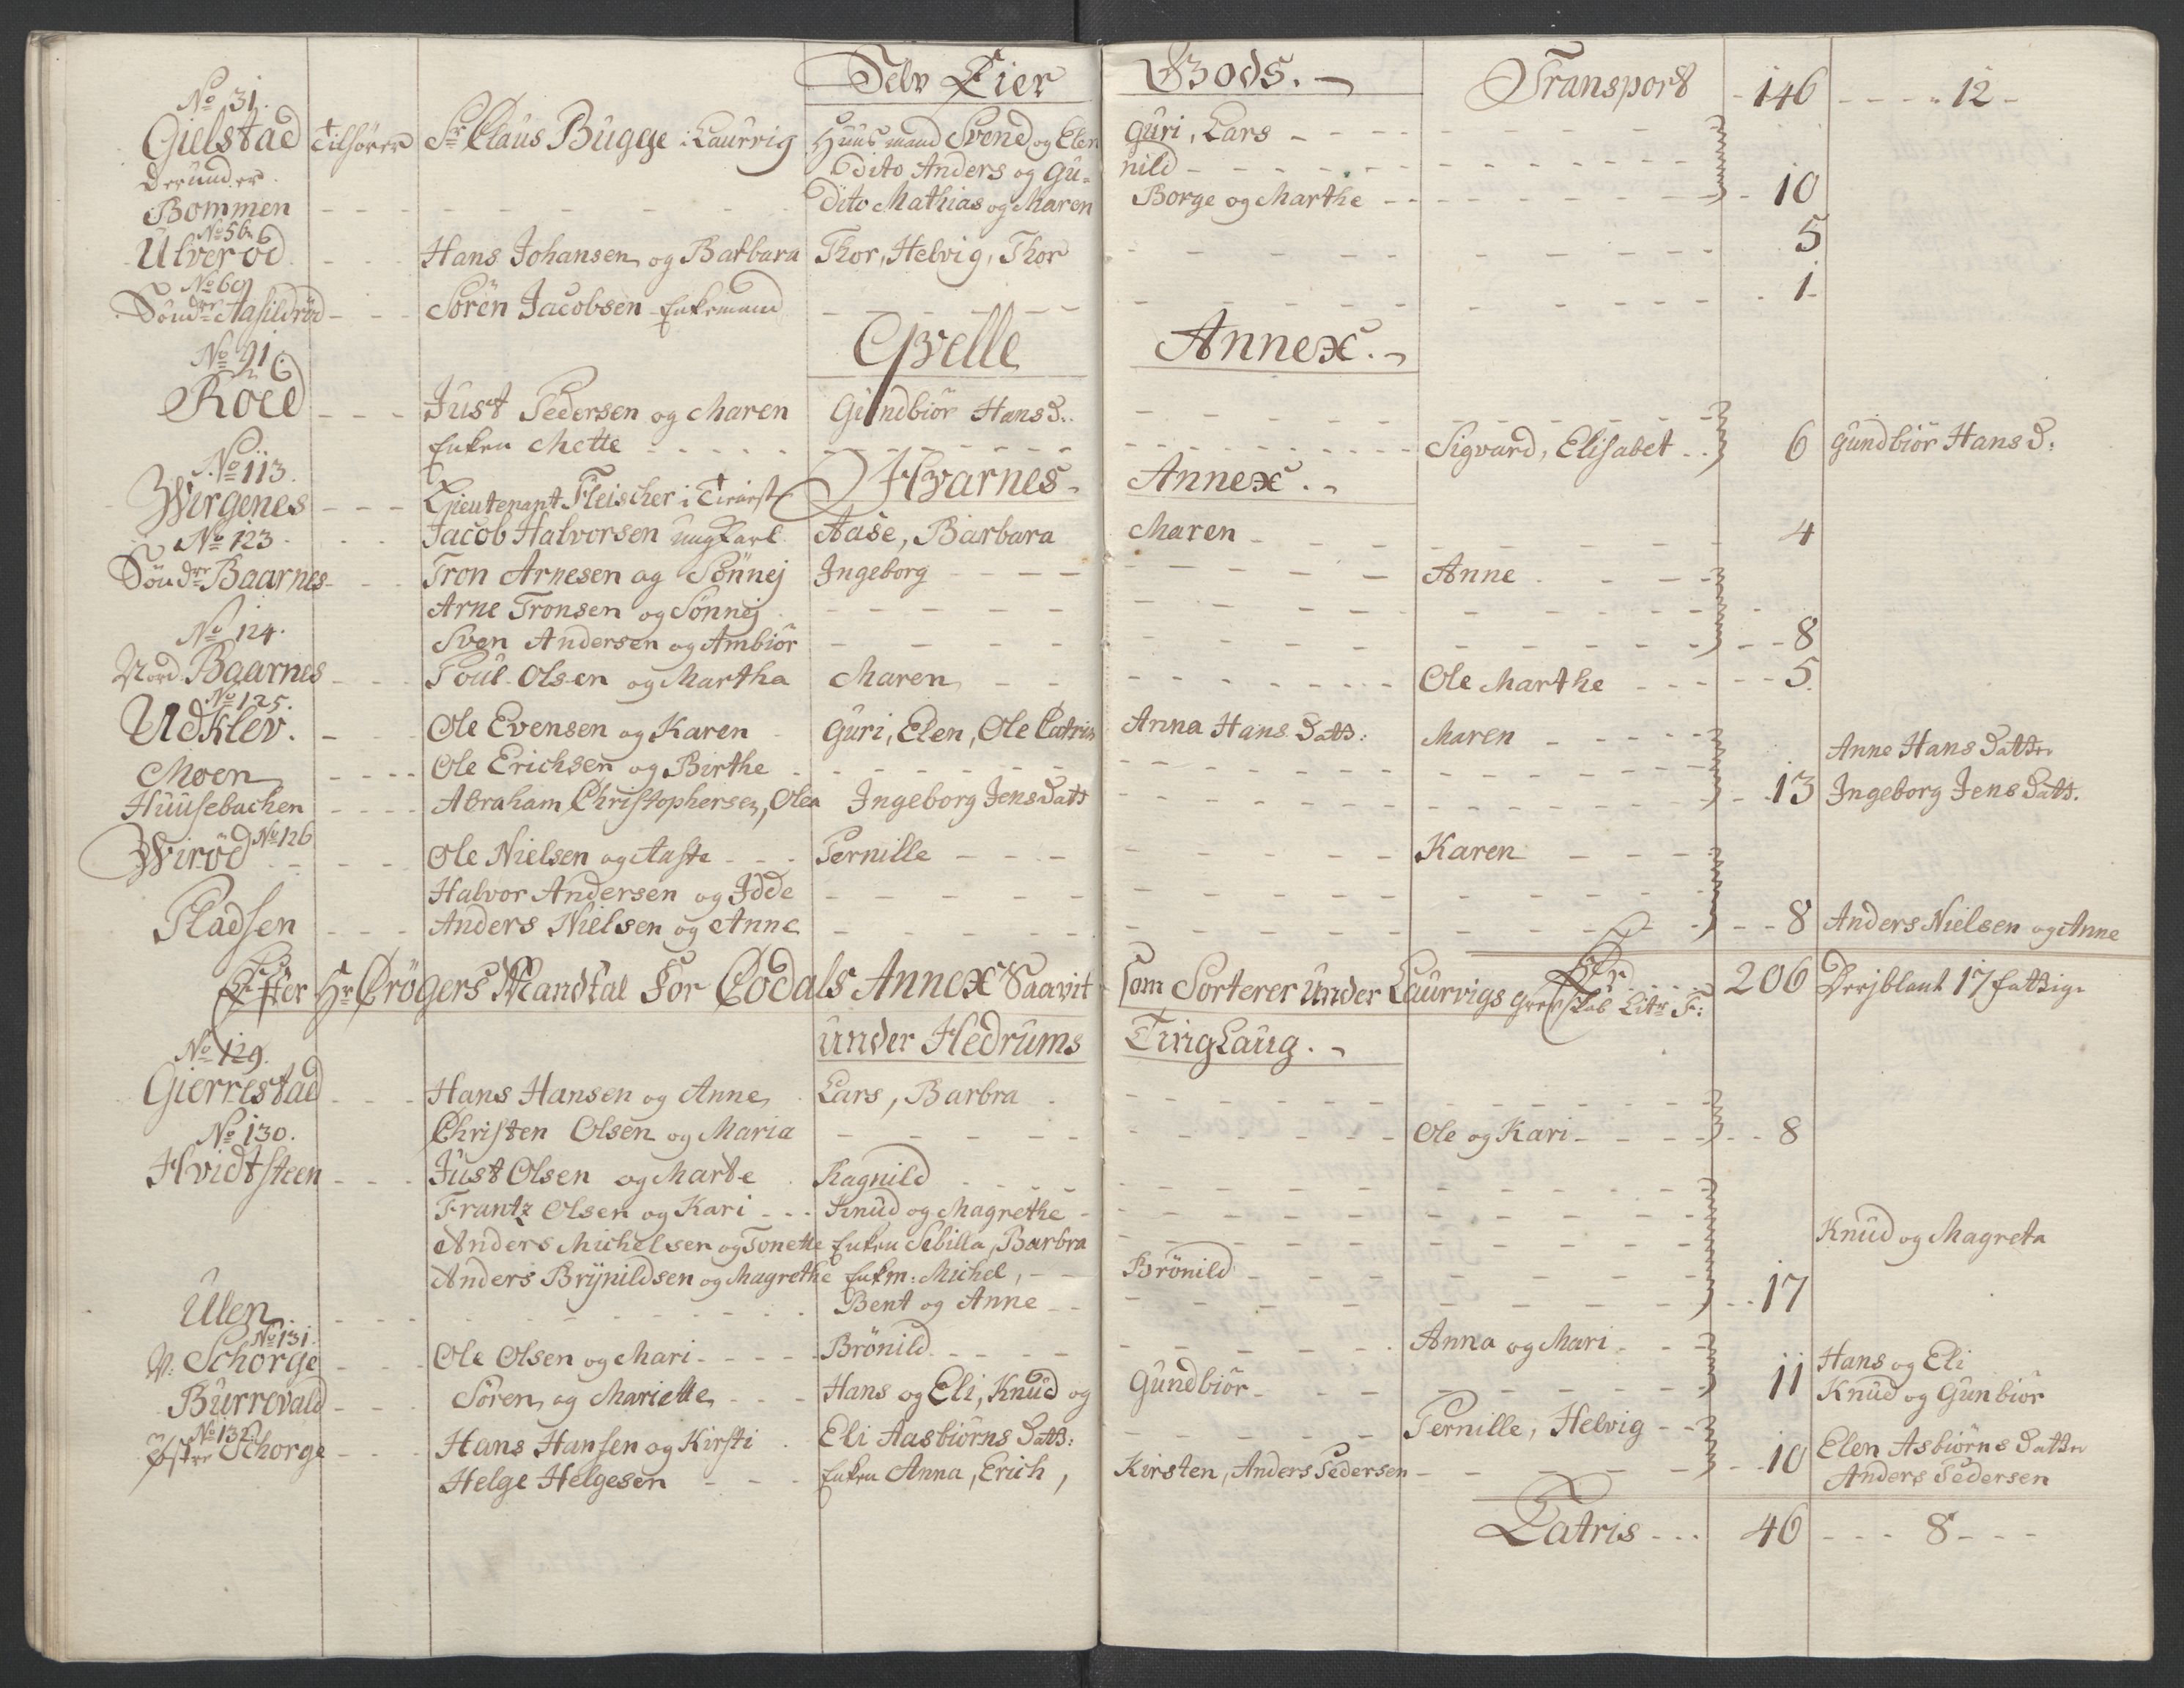 Selv Eier Gods. Transport 146 12
No 31.
Gielstad Tilhører Sr Claus Bugge i Laurvig Huusmand Svend og Elen Guri, Lars
Derunder Dito Anders og Gu= nild
Bommen Dito Mathias og Maren Borge og Marthe 10
No 56
Ulverød Hans Johansen og Barbara Thor, Helvig, Thor 5
No 60
Søndre Aasildrød Sören Jacobsen Enkemand 1
Qvelle Annex.
No 91
Röed Just Pedersen og Maren Gundbiör Hans D.
Enken Mette Sigvard, Elisabet 6 Gundbiör Hans D:
Hvarnes Annex.
No 113.
Wergenes Lieutenant Fleischer i
Jacob Halvorsen ungkarl Aase, Barbara Maren 4
No 123
Søndre Baarnes Tron Arnesen og Sönnej Ingeborg Anne
Arne Tronsen og Sönnej
Sven Andersen og Ambiör 8
No 124.
Nord Baarnes Poul Olsen og Martha Maren Ole Marthe 5.
No 125.
Udklev. Ole Evensen og Karen Guri, Elen, Ole Catrin Anna Hans Datt: Maren Anne Hans Datter
Moen Ole Erichsen og Birthe
Huusebachen Abraham Christophersen, Olea Ingeborg Jens Datt 13 Ingeborg Jens Datt.
No 126
Wiröd Ole Nielsen og Aaste Pernille Karen
Halvor Andersen og Idde
Pladsen Anders Nielsen og Anne 8 Anders Nielsen og Anne
Er 206 Derjblant 17 fattige
Efter Hr Crögers Mandtal For Codals Annex Saavit som Sorterer under Laurvigs Grevskab Litr F:
under Hedrums TingLaug.
No 129.
Gierrestad Hans Hansen og Anne Lars, Barbra
Christen Olsen og Maria Ole og Kari 8
No 130.
Hvidtsteen Just Olsen og Marte Ragnild
Frantz Olsen og Kari Knud og Magrethe
Anders Michelsen og Tonette Enken Sibilla, Barbra Knud og Magreta
Anders Brynildsen og Magrethe Enkm: Michel, Brönild
Ulen Bent og Anne 17
No 131.
N: Schorge Ole Olsen og Mari Brönild Anna og Mari Hans og Eli
Burrevald Sören og Mariette Hans og Eli, Knud og Gundbiör 11 Knud og Gunbiör
No 132
Østre Schorge Hans Hansen og Kirsti Eli Aasbiörns Datt: Pernille, Helvig Elen Asbiörns Datter
Helge Helgesen Enken Anna, Erich, Kirsten, Anders Pedersen 10 Anders Pedersen
Latris 46 8